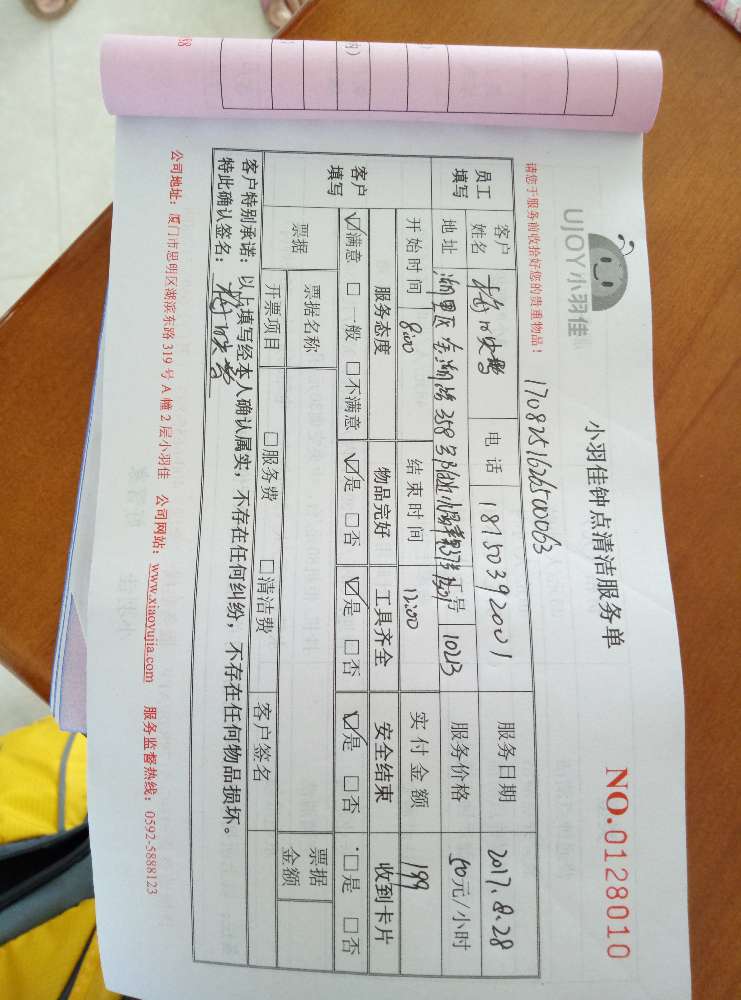 小羽佳钟点清洁服务单
UJOY小羽佳
NO.0128010
请您于服务前收拾好您的贵重物品！
17082516265000063
员工填写 客户姓名 电话 18750392001 服务日期 2017.8.28
地址 358号 工号 10213 服务价格 50元/小时
开始时间 8:00 结束时间 12:00 实付金额 199
客户填写 服务态度 物品完好 工具齐全 安全结束 收到卡片
☑满意 □一般 □不满意 ☑是 □否 ☑是 □否 ☑是 □否 □是 □否
票据 票据名称 票据金额
开票项目 □服务费 □清洁费 客户签名
客户特别承诺：以上填写经本人确认属实，不存在任何纠纷，不存在任何物品损坏。
特此确认签名：
公司地址：厦门市思明区湖滨东路 319 号 A 幢 2 层小羽佳 公司网站：www.xiaoyujia.com 服务监督热线：0592-5888123